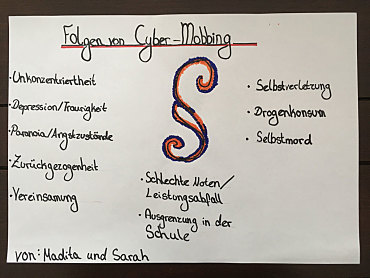 Folgen von Cyber-Mobbing
· Unkonzentriertheit
· Depression/Traurigkeit
· Paranoia/Angstzustände
· Zurückgezogenheit
· Vereinsamung
§
· Schlechte Noten/
Leistungsabfall
· Ausgrenzung in der
Schule
· Selbstverletzung
· Drogenkonsum
· Selbstmord
von: Madita und Sarah